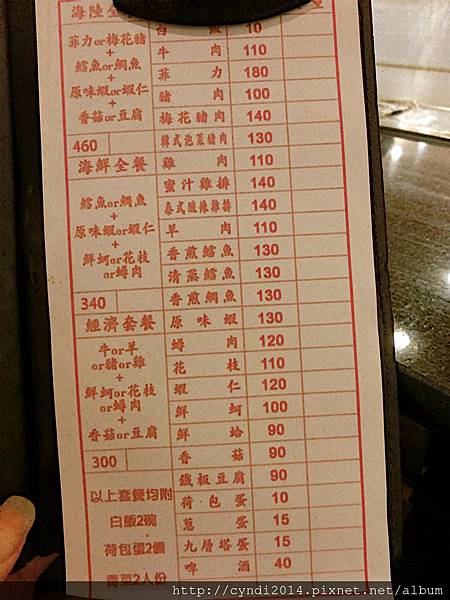 海陸全
菲力or梅花豬
+
鱈魚or鯛魚
+
原味蝦or蝦仁
+
香菇or豆腐
460
海鮮全餐
鱈魚or鯛魚
+
原味蝦or蝦仁
+
鮮蚵or花枝
or蟳肉
340
經濟套餐
牛or羊
or豬or雞
+
鮮蚵or花枝
or蟳肉
+
香菇or豆腐
300
以上套餐均附
白飯2碗
荷包蛋2個
青菜2人份
白飯 10
牛肉 110
菲力 180
豬肉 100
梅花豬肉 140
韓式泡菜豬肉 130
雞肉 110
蜜汁雞排 140
泰式酸辣雞排 140
羊肉 110
香煎鱈魚 130
清蒸鱈魚 130
香煎鯛魚 130
原味蝦 130
蟳肉 120
花枝 110
蝦仁 120
鮮蚵 100
鮮蛤 90
香菇 90
鐵板豆腐 90
荷包蛋 10
蔥蛋 15
九層塔蛋 15
啤酒 40
http://cyndi2014.pixnet.net/album